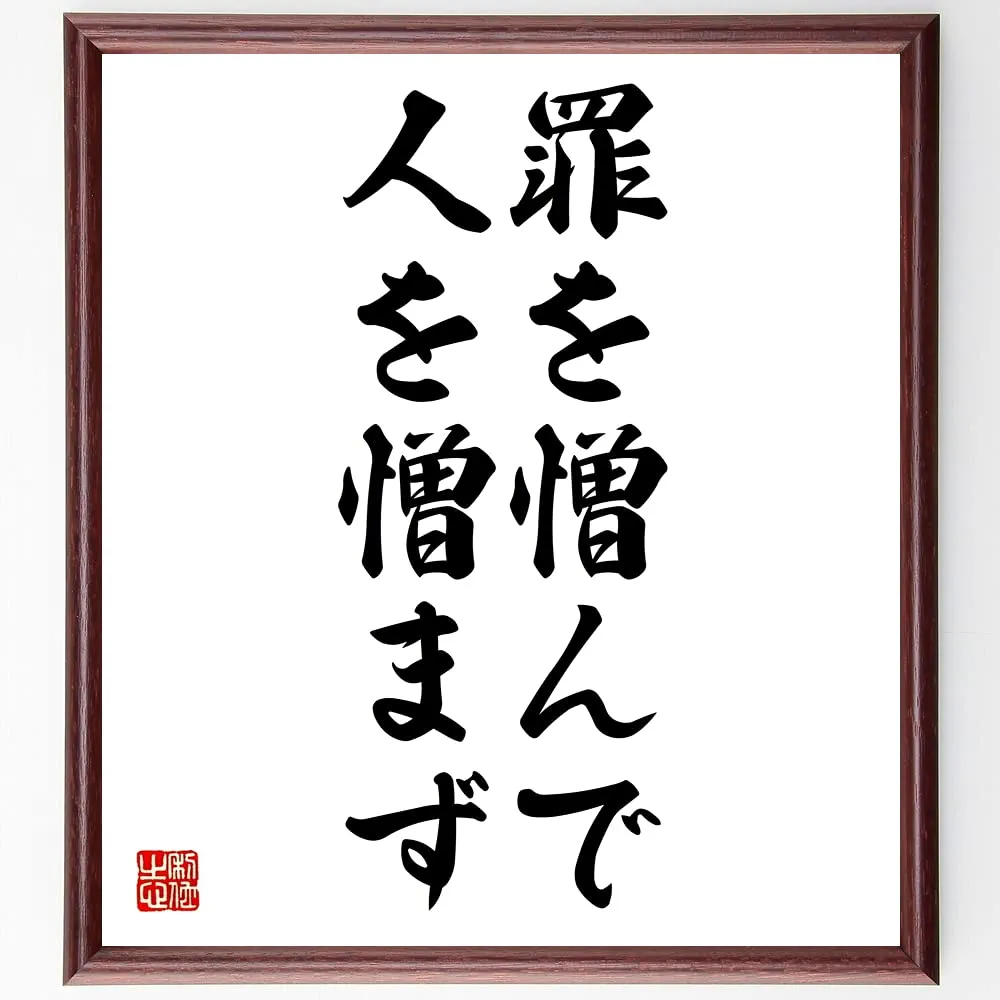 罪を憎んで
人を憎まず